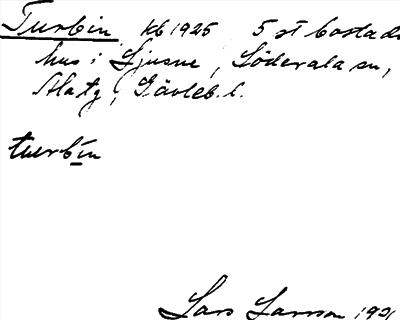 Turbin, kb 1925 5 st bostads
hus i Ljusne, Söderala sn,
Alatg, Gävleb. l.
turbin
Lars Larsson 1921